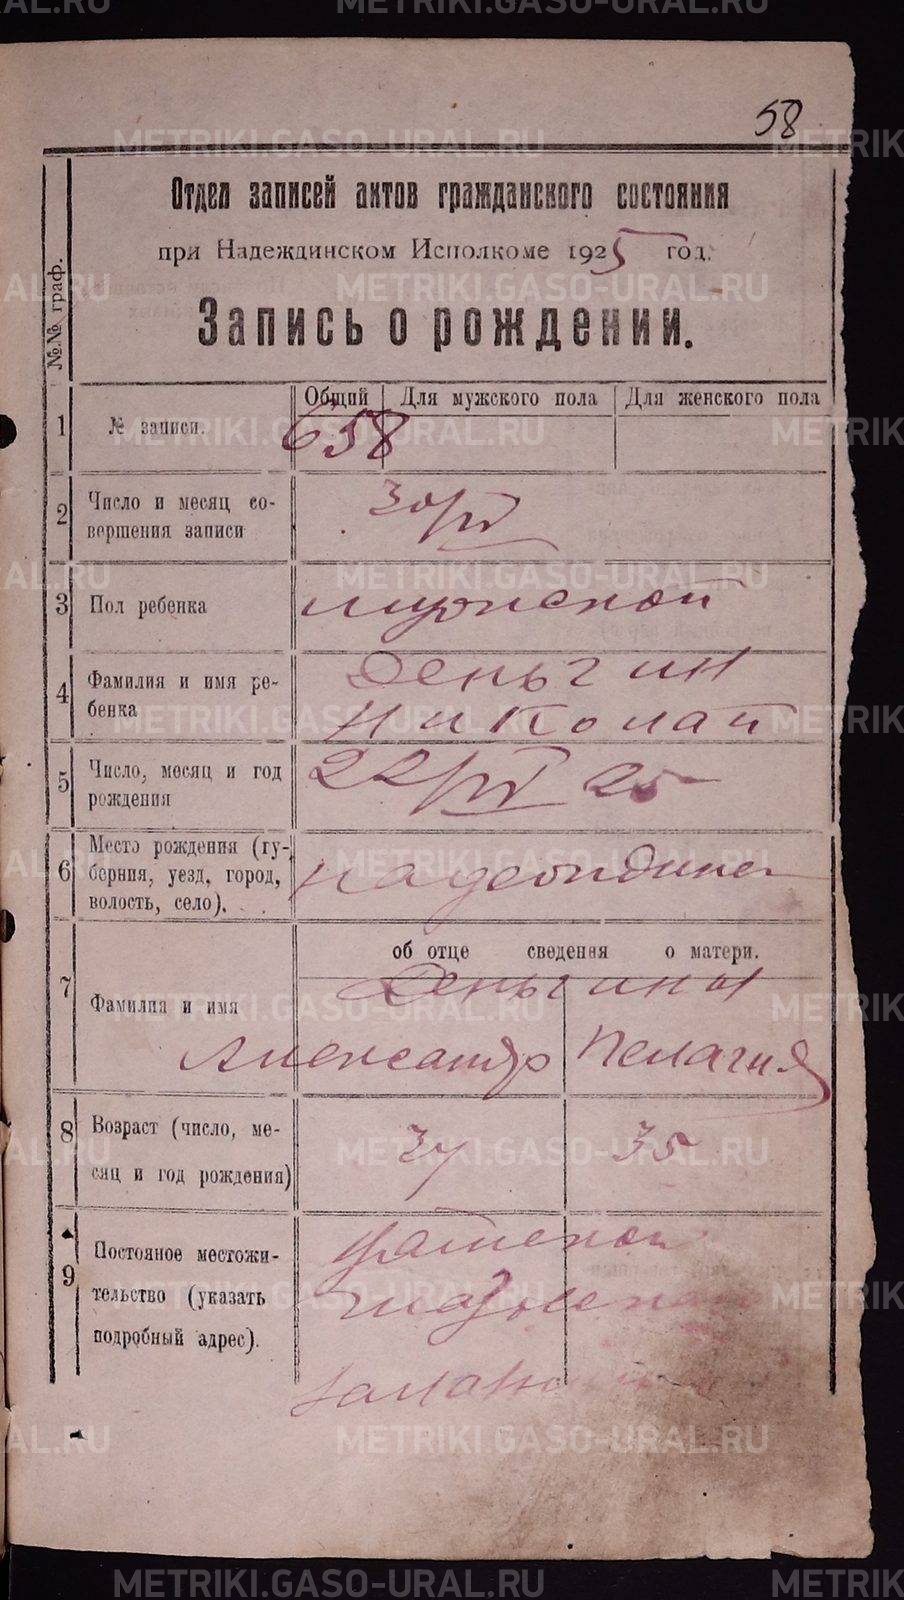 58
Отдел записей актов гражданского состояния
при Надеждинском Исполкоме 1925 год.
Запись о рождении.
№№ граф.
Общий Для мужского пола Для женского пола
1 № записи. 658
2 Число и месяц со-
вершения записи
30/VI
3 Пол ребенка мужской
4 Фамилия и имя ре-
бенка
Деньгин
Николай
5 Число, месяц и год
рождения
22/VI 25
6 Место рождения (гу-
берния, уезд, город,
волость, село).
Надеждинск
об отце сведения о матери.
7 Фамилия и имя
Деньгины
Александр Пелагия
8 Возраст (число, ме-
сяц и год рождения)
34 35
9 Постояное местожи-
тельство (указать
подробный адрес).
METRIKI.GASO-URAL.RU